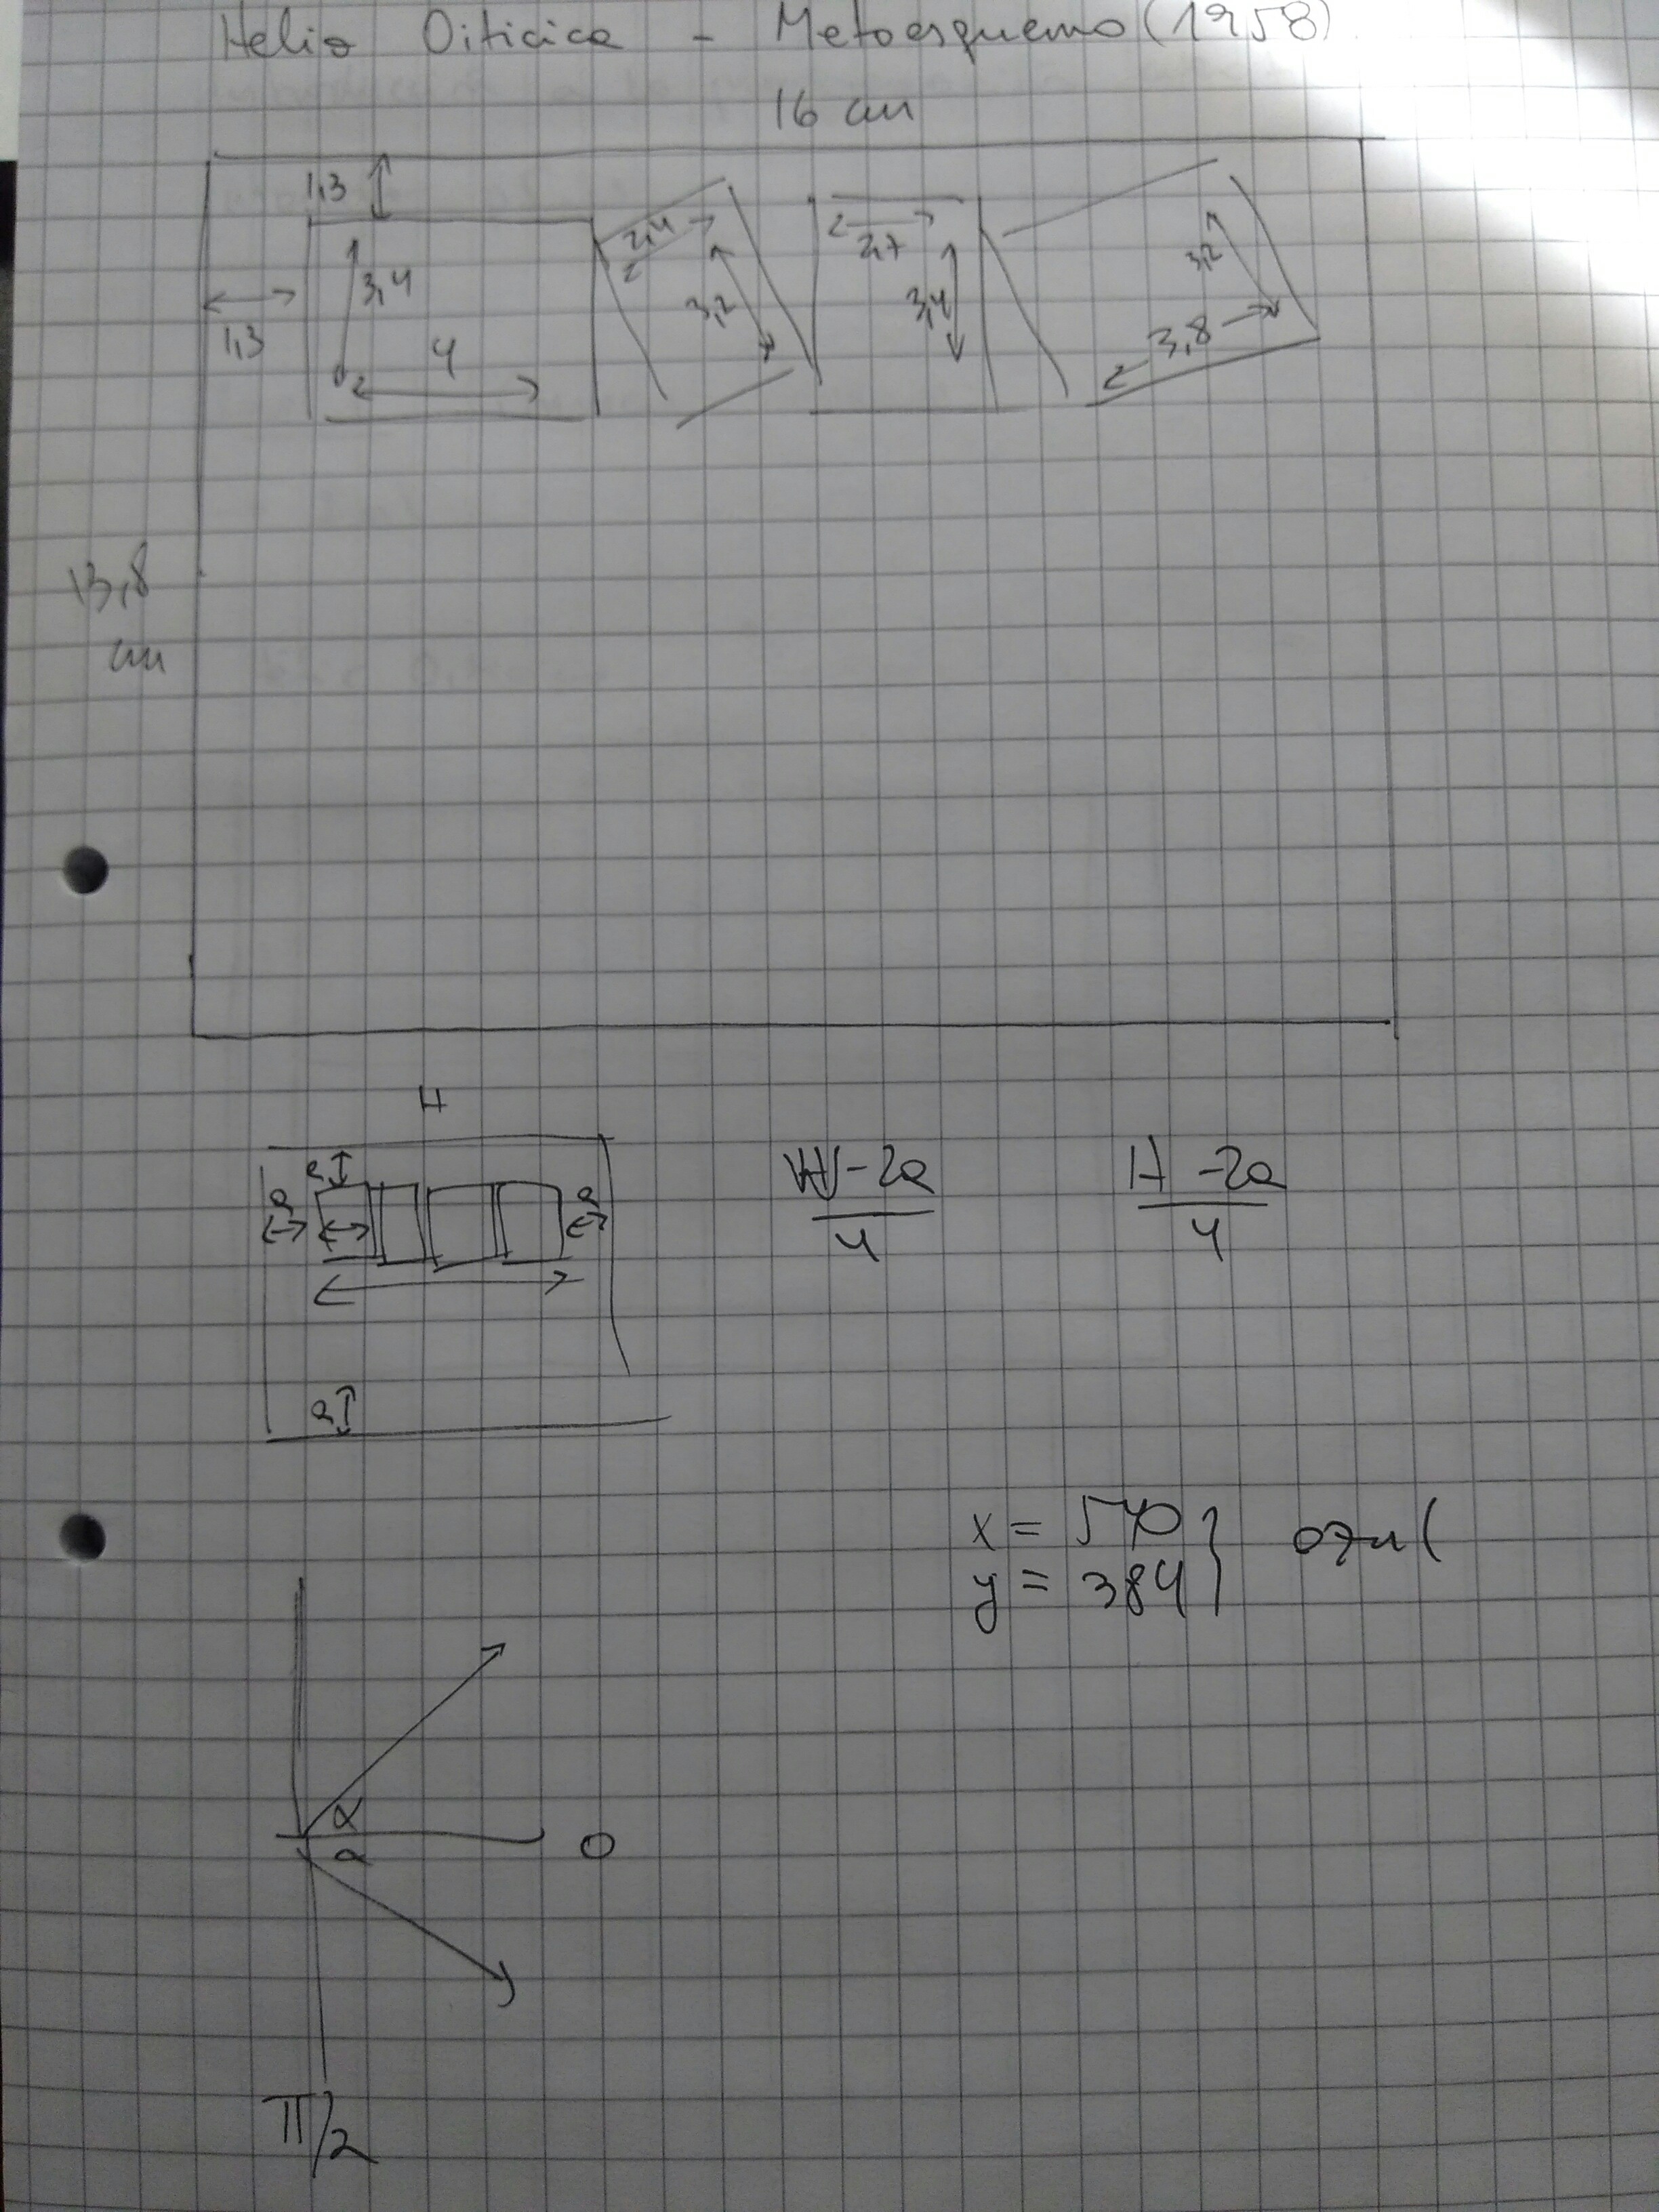 Helio Oiticica - Metaesquema (1958)
16 cm
1,3
1,3
3,4
4
2,4
3,2
2,7
3,4
3,2
3,8
13,8
cm
H
a
a
a
a
W-2a
4
H-2a
4
x = 540
y = 384
α
α
0
π/2